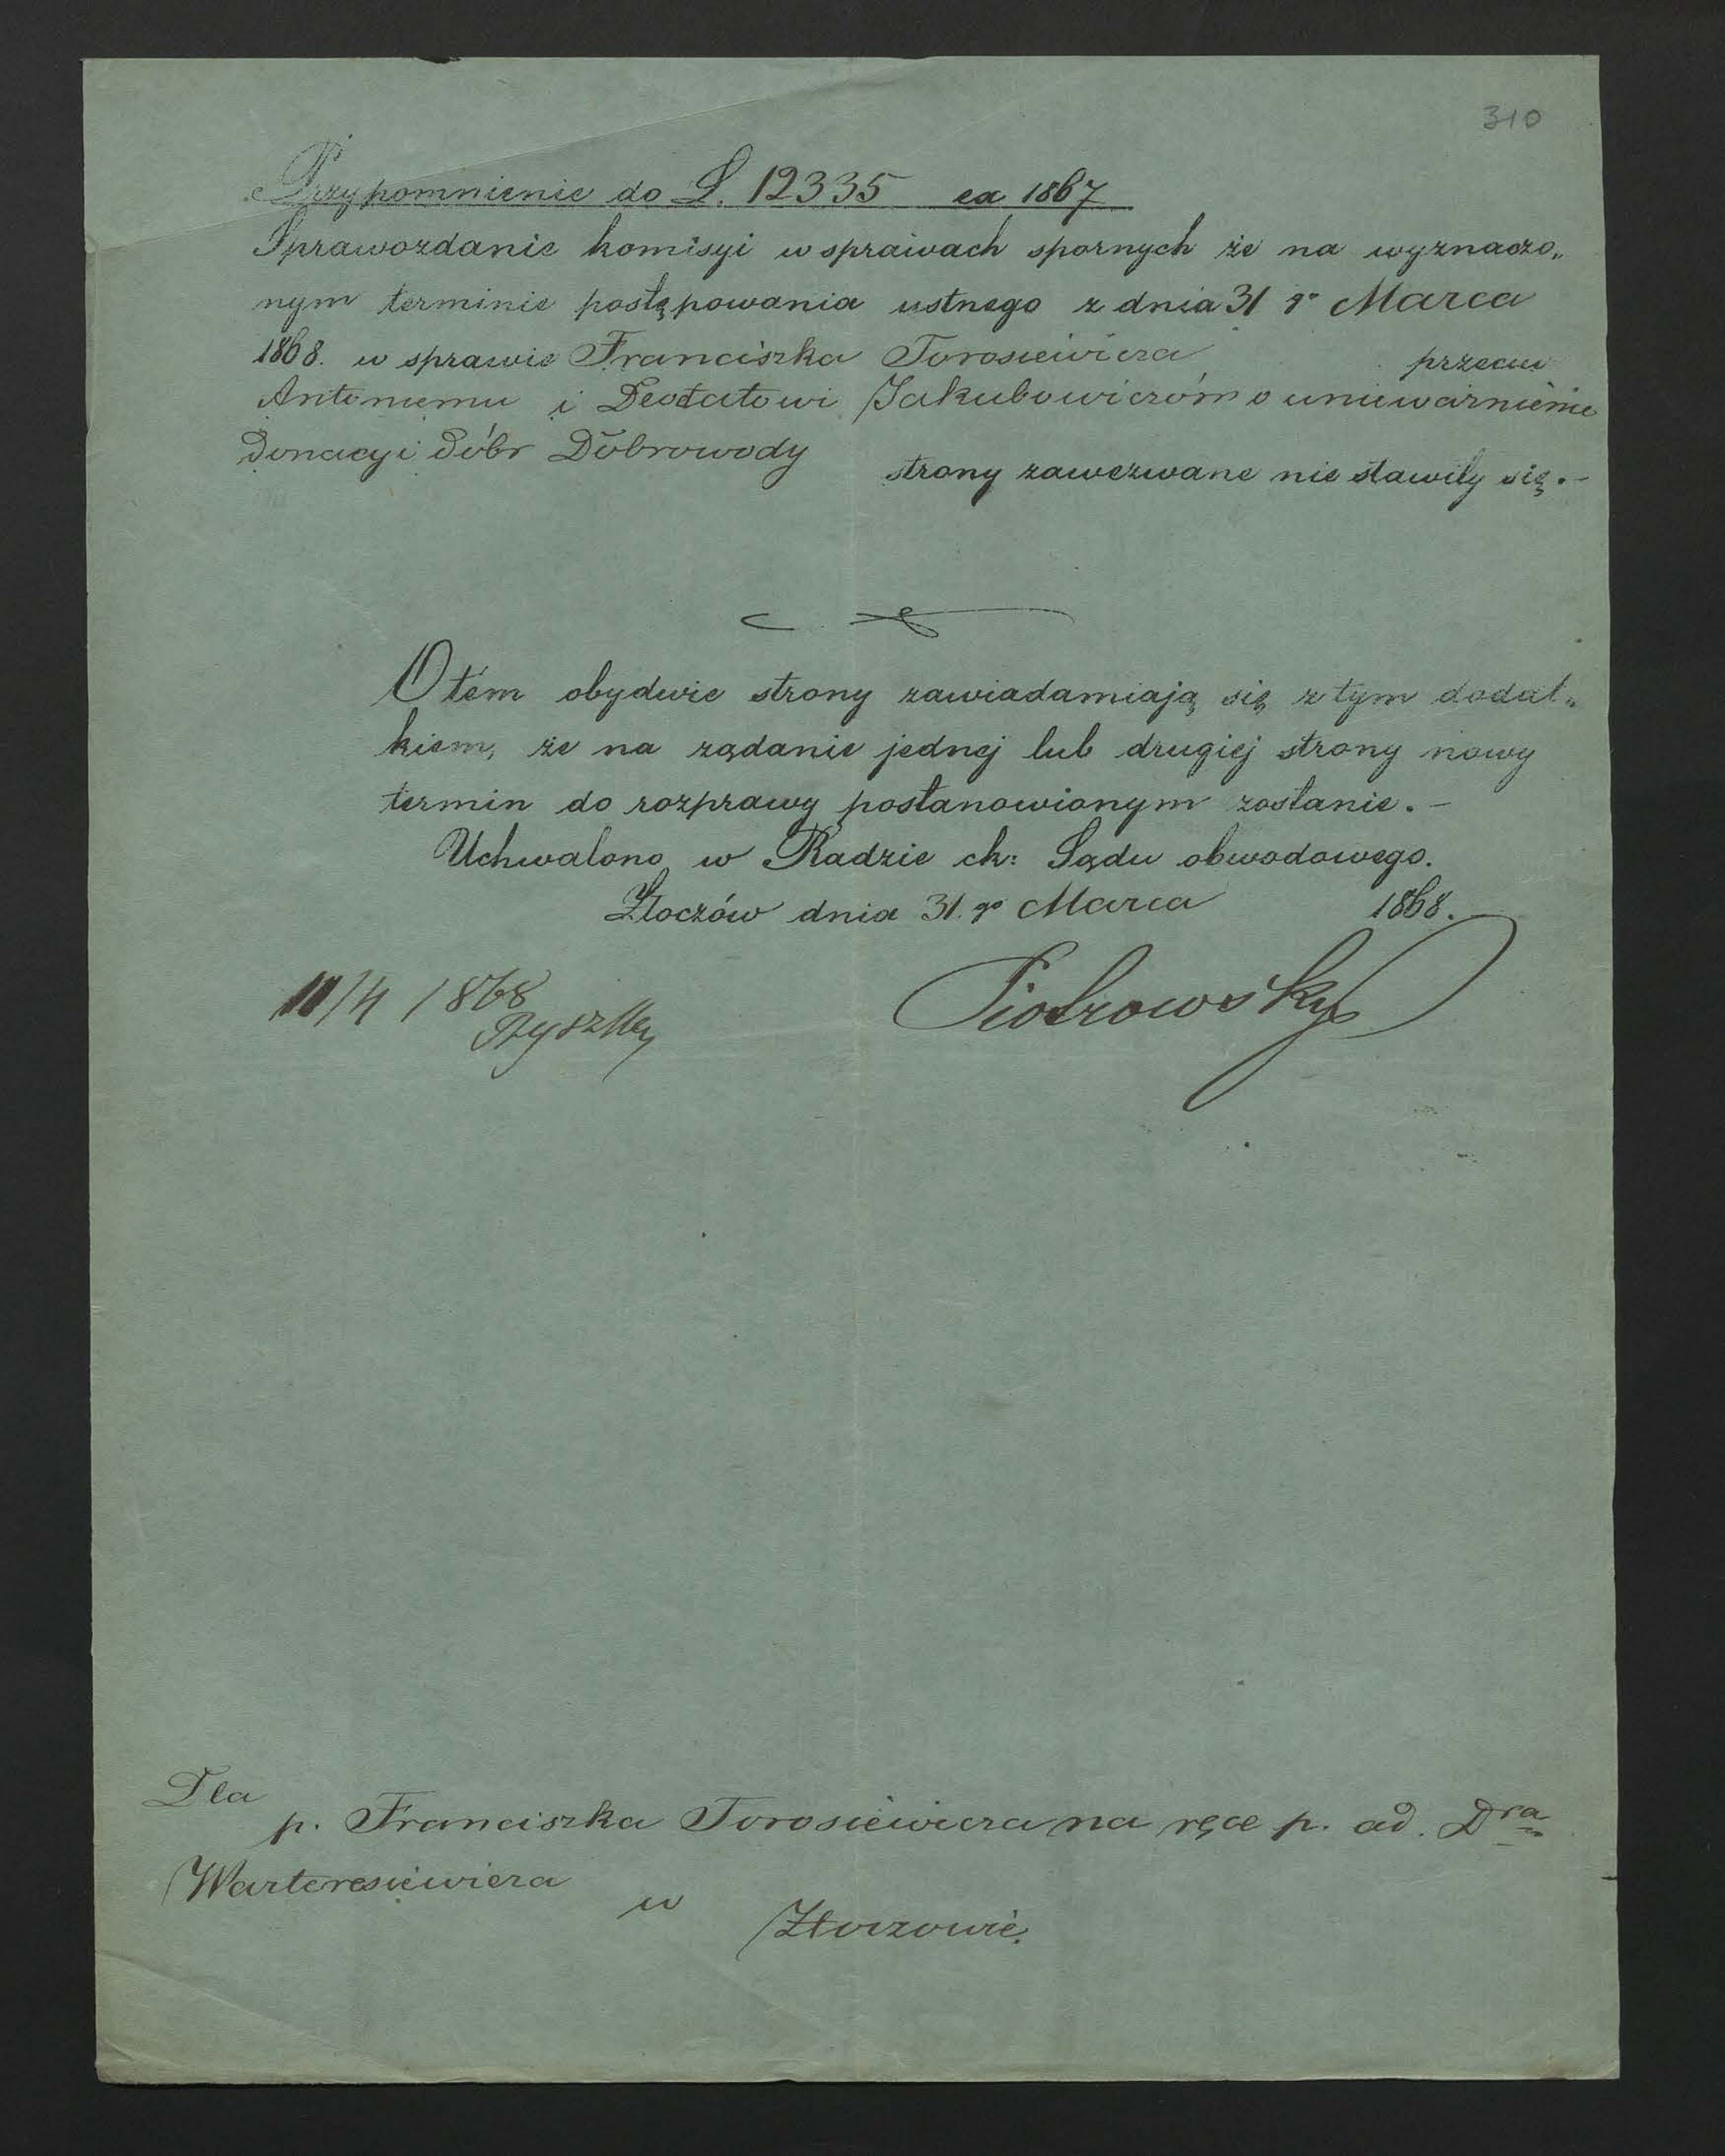 310
Przypomnienie do L. 12335 ex 1867
Sprawozdanie komisyi w sprawach spornych że na wyznaczo„
nym terminie postępowania ustnego z dnia 31 go Marca
1868. w sprawie Franciszka Torosiewicza przeciw
Antoniemu i Deodatowi Jakubowiczóm o unieważnienie
Donacyi Dóbr Dobrowody strony zawezwane nie stawiły się.–
O tém obydwie strony zawiadamiają się z tym dodat„
kiem, że na rządanie jednej lub drugiej strony nowy
termin do rozprawy postanowionym zostanie.–
Uchwalono w Radzie ck: Sądu obwodowego.
Złoczów dnia 31. go Marca 1868.
Piotrowsky
/4 1868
Dla
p. Franciszka Torosiewicza na ręce p. ad. Dra
Warteresiewicza
w Złoczowie.